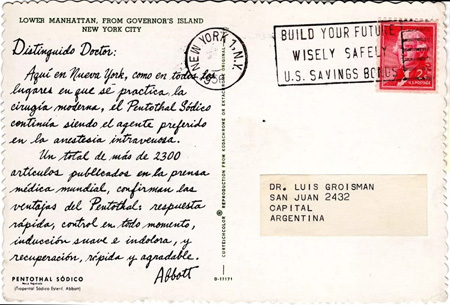 LOWER MANHATTAN, FROM GOVERNOR'S ISLAND
NEW YORK CITY
Distinguido Doctor:
Aquí en Nueva York, como en todos los
lugares en que se practica la
cirugía moderna, el Pentothal Sódico
continúa siendo el agente preferido
en la anestesia intravenosa.
Un total de más de 2300
artículos publicados en la prensa
médica mundial, confirman las
ventajas del Pentothal: respuesta
rápida, control en todo momento,
inducción suave e indolora, y
recuperación, rápida y agradable.
Abbott
PENTOTHAL SÓDICO
(Tiopental Sódico Estéril, Abbott)
CURTEICHCOLOR® REPRODUCTION FROM KODACHROME OR EKTACHROME ORIGINAL
D-11171
NEW YORK 1, N.Y.
BUILD YOUR FUTURE
WISELY SAFELY
U.S. SAVINGS BONDS
DR. LUIS GROISMAN
SAN JUAN 2432
CAPITAL
ARGENTINA